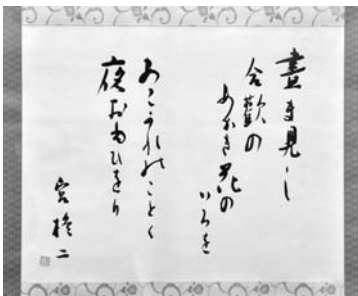 晝間見し
合歡の
あかき花の
いろを
あこかれのことく
夜おもひをり
宮柊二